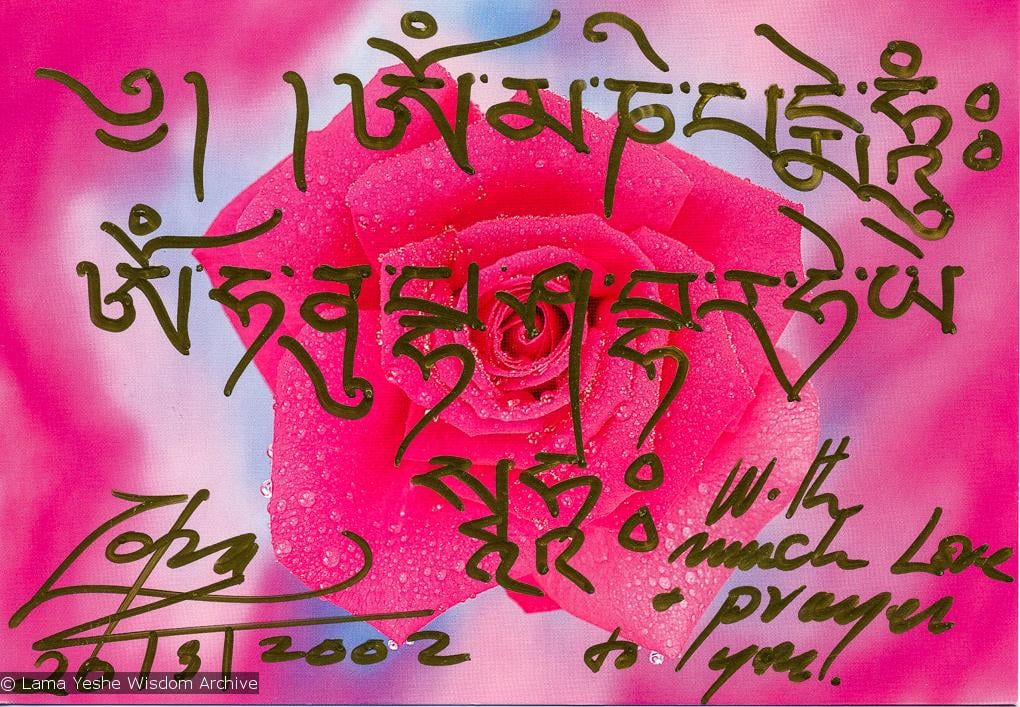 ༄། །ཨོཾ་མ་ཎི་པདྨེ་ཧཱུྃ༔
ཨོཾ་ཧ་ནུ་ ཤ་བྷ་ར་ཧེ་ཡེ
སྭཱ་ཧཱ༔
With
much Love
+ prayer
to you!
Zopa
26/3/2002
© Lama Yeshe Wisdom Archive